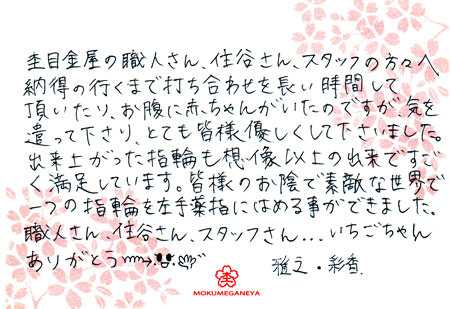 杢目金屋の職人さん、住谷さん、スタッフの方々へ
納得の行くまで打ち合わせを長い時間して
頂いたり、お腹に赤ちゃんがいたのですが、気を
遣って下さり、とても皆様優しくして下さいました。
出来上がった指輪も想像以上の出来ですご
く満足しています。皆様のお陰で素敵な世界で
一つの指輪を左手薬指にはめる事ができました。
職人さん、住谷さん、スタッフさん...いちごちゃん
ありがとう
雅之・彩香
MOKUMEGANEYA